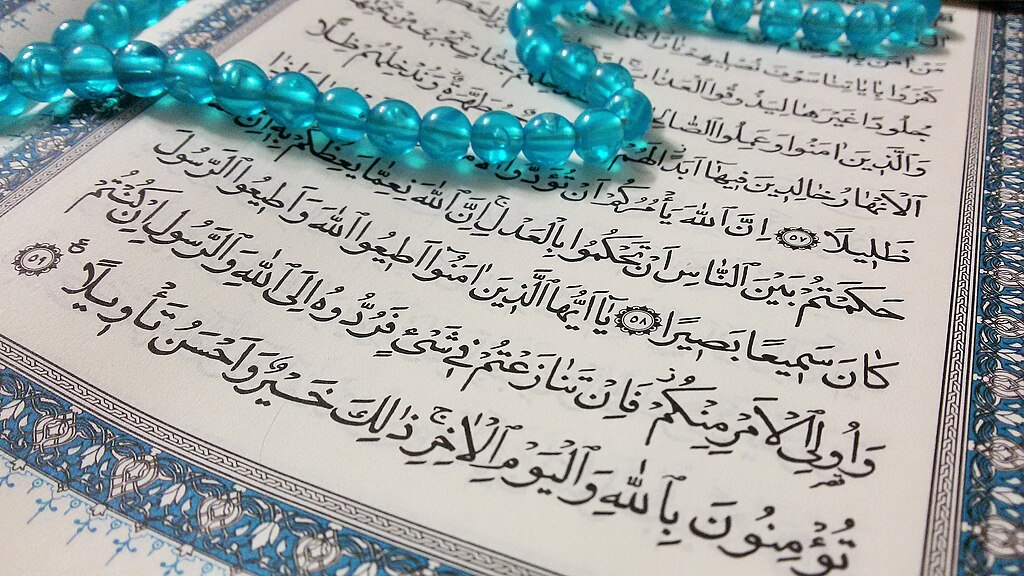 مَنْ اٰمَنَ
كَفَرُوا بِاٰيَاتِنَا سَوْفَ نُصْلِيهِمْ نَارًا كُلَّمَا
جُلُودًا غَيْرَهَا لِيَذُوقُوا الْعَذَابَ
وَالَّذِينَ اٰمَنُوا وَعَمِلُوا الصَّالِحَاتِ سَنُدْخِلُهُمْ جَنَّاتٍ تَجْرِى مِنْ تَحْتِهَا
الْاَنْهَارُ خَالِدِينَ فِيهَٓا اَبَدًا لَهُمْ مُطَهَّرَةٌ وَنُدْخِلُهُمْ ظِلًّا
ظَلِيلًا ٥٧ اِنَّ اللّٰهَ يَأْمُرُكُمْ اَنْ تُؤَدُّوا الْاَمَانَاتِ
حَكَمْتُمْ بَيْنَ النَّاسِ اَنْ تَحْكُمُوا بِالْعَدْلِ اِنَّ اللّٰهَ نِعِمَّا يَعِظُكُمْ بِهِ اِنَّ
كَانَ سَمِيعًا بَصِيرًا ٥٨ يَٓا اَيُّهَا الَّذِينَ اٰمَنُٓوا اَطِيعُوا اللّٰهَ وَاَطِيعُوا الرَّسُولَ
وَاُولِى الْاَمْرِ مِنْكُمْ فَاِنْ تَنَازَعْتُمْ فِى شَىْءٍ فَرُدُّوهُ اِلَى اللّٰهِ وَالرَّسُولِ اِنْ كُنْتُمْ
تُؤْمِنُونَ بِاللّٰهِ وَالْيَوْمِ الْاٰخِرِ ذٰلِكَ خَيْرٌ وَاَحْسَنُ تَأْوِيلًا ع ٥٩